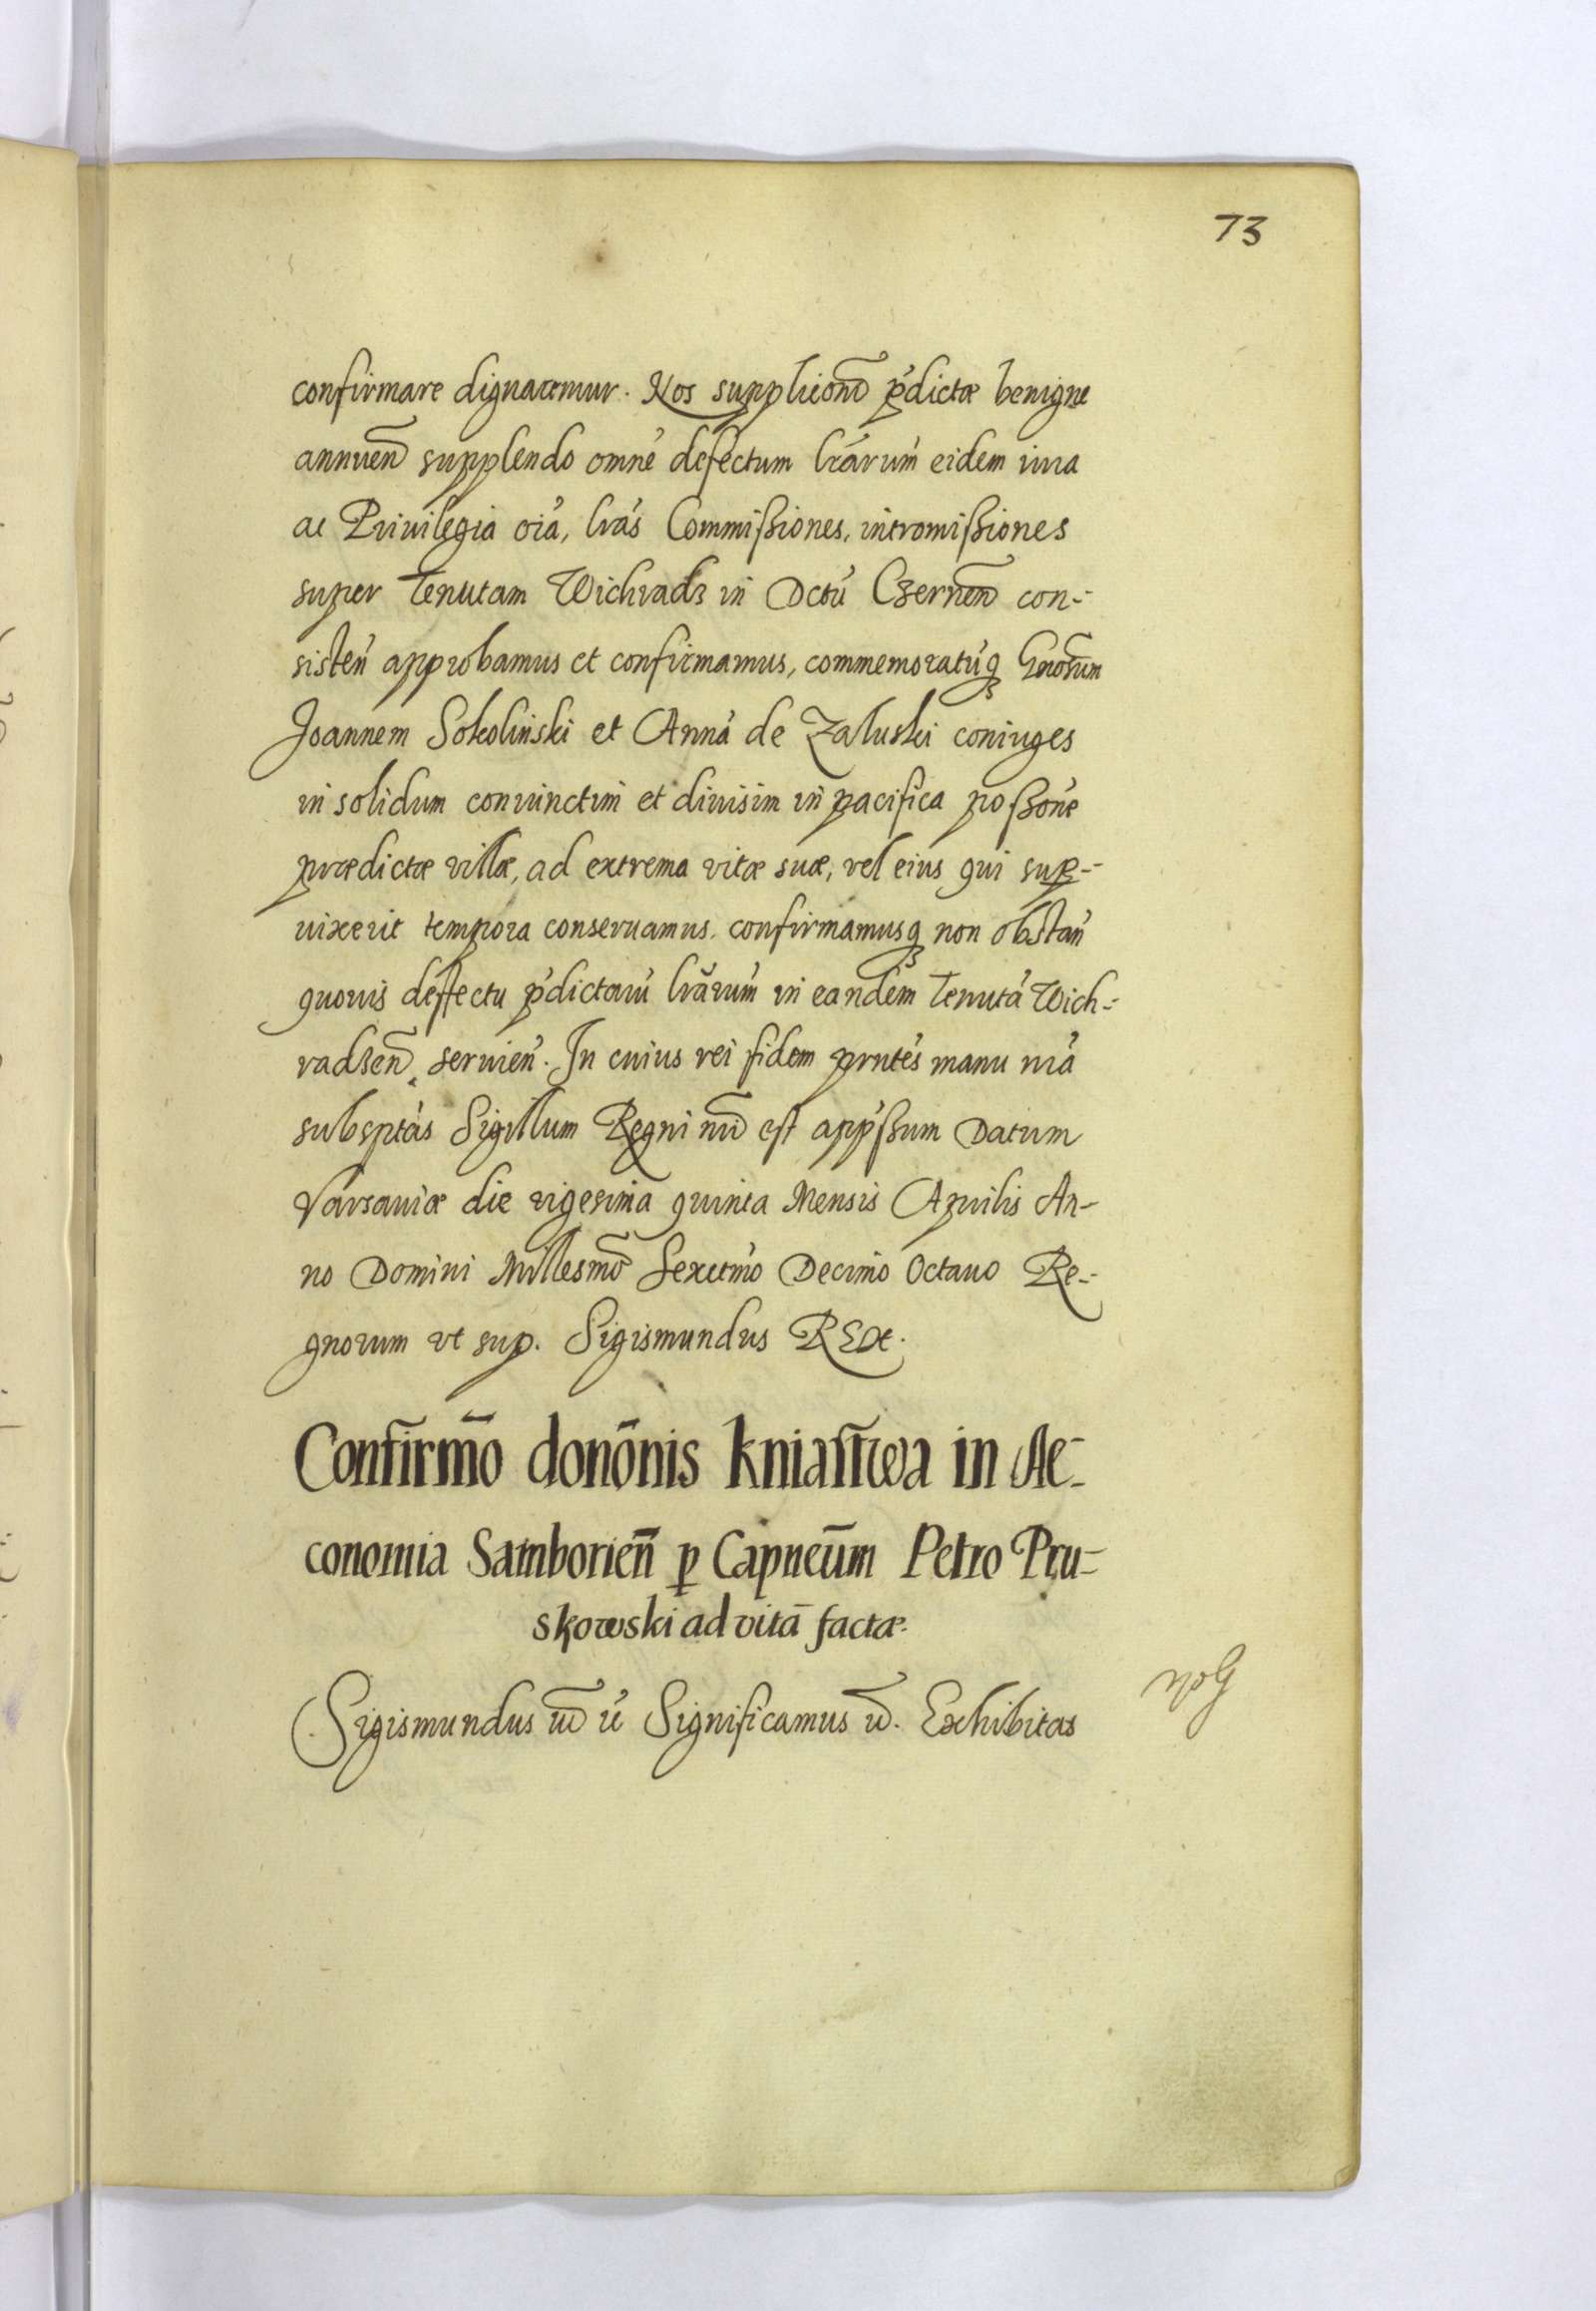 73
confirmare dignaremur. Nos supplicõni p̃dictæ benigne
annueñ supplendo omné defectum lrãrum eidem iura
ac Priuilegia oiá, lrás Commißiones, intromißiones
super Tenutam Wichradz in Dctú Czerneñ con-
sisteñ approbamus et confirmamus, commemoratúq Gnõrum
Joannem Sokolinski et Anná de Zaluski coniuges
in solidum coniunctim et diuisim in pacifica poßoné
prædictæ villæ, ad extrema vitæ suæ, vel eius qui sup-
uixerit tempora conseruamus, confirmamusq non obstañ
quouis deffectu p̃dictarú lrãrum in eandem Tenutá Wich-
radzeñ seruieñ. In cuius rei fidem prntés manu nrá
subsptás Sigillum Regni nrĩ est app̃ßum Datum
Varsauiæ die vigesima quinta Mensis Aprilis An-
no Domini Millesmõ Sexctmó Decimo Octauo Re-
gnorum vt sup. Sigismundus REX.
Confirmõ donõnis kniastwa in Ae-
conomia Samborieñ p Capneũm Petro Pru-
skowski ad vitã factæ.
Sigismundus Significamus Exhibitas